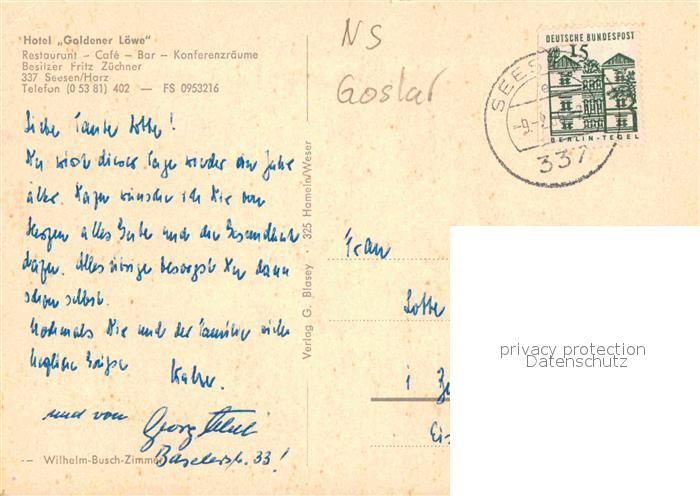 Hotel „Goldener Löwe"
Restaurant – Café – Bar – Konferenzräume
Besitzer Fritz Züchner
337 Seesen/Harz
Telefon (0 53 81) 402 — FS 0953216
NS
Goslar
DEUTSCHE BUNDESPOST
15
BERLIN-TEGEL
SEES
337
Liebe Tante Lotte!
Du wirst dieser Tage wieder ein Jahr
älter. Dazu wünsche ich Dir von
Herzen alles Gute und die Gesundheit
dazu. Alles übrige besorgst Du dann
schon selbst.
Nochmals Dir und der Familie viele
herzliche Grüße
und von Georg
Baselerstr. 33!
-- Wilhelm-Busch-Zimmer
Verlag G. Blasey · 325 Hameln/Weser
Frau
Lotte
i
privacy protection
Datenschutz